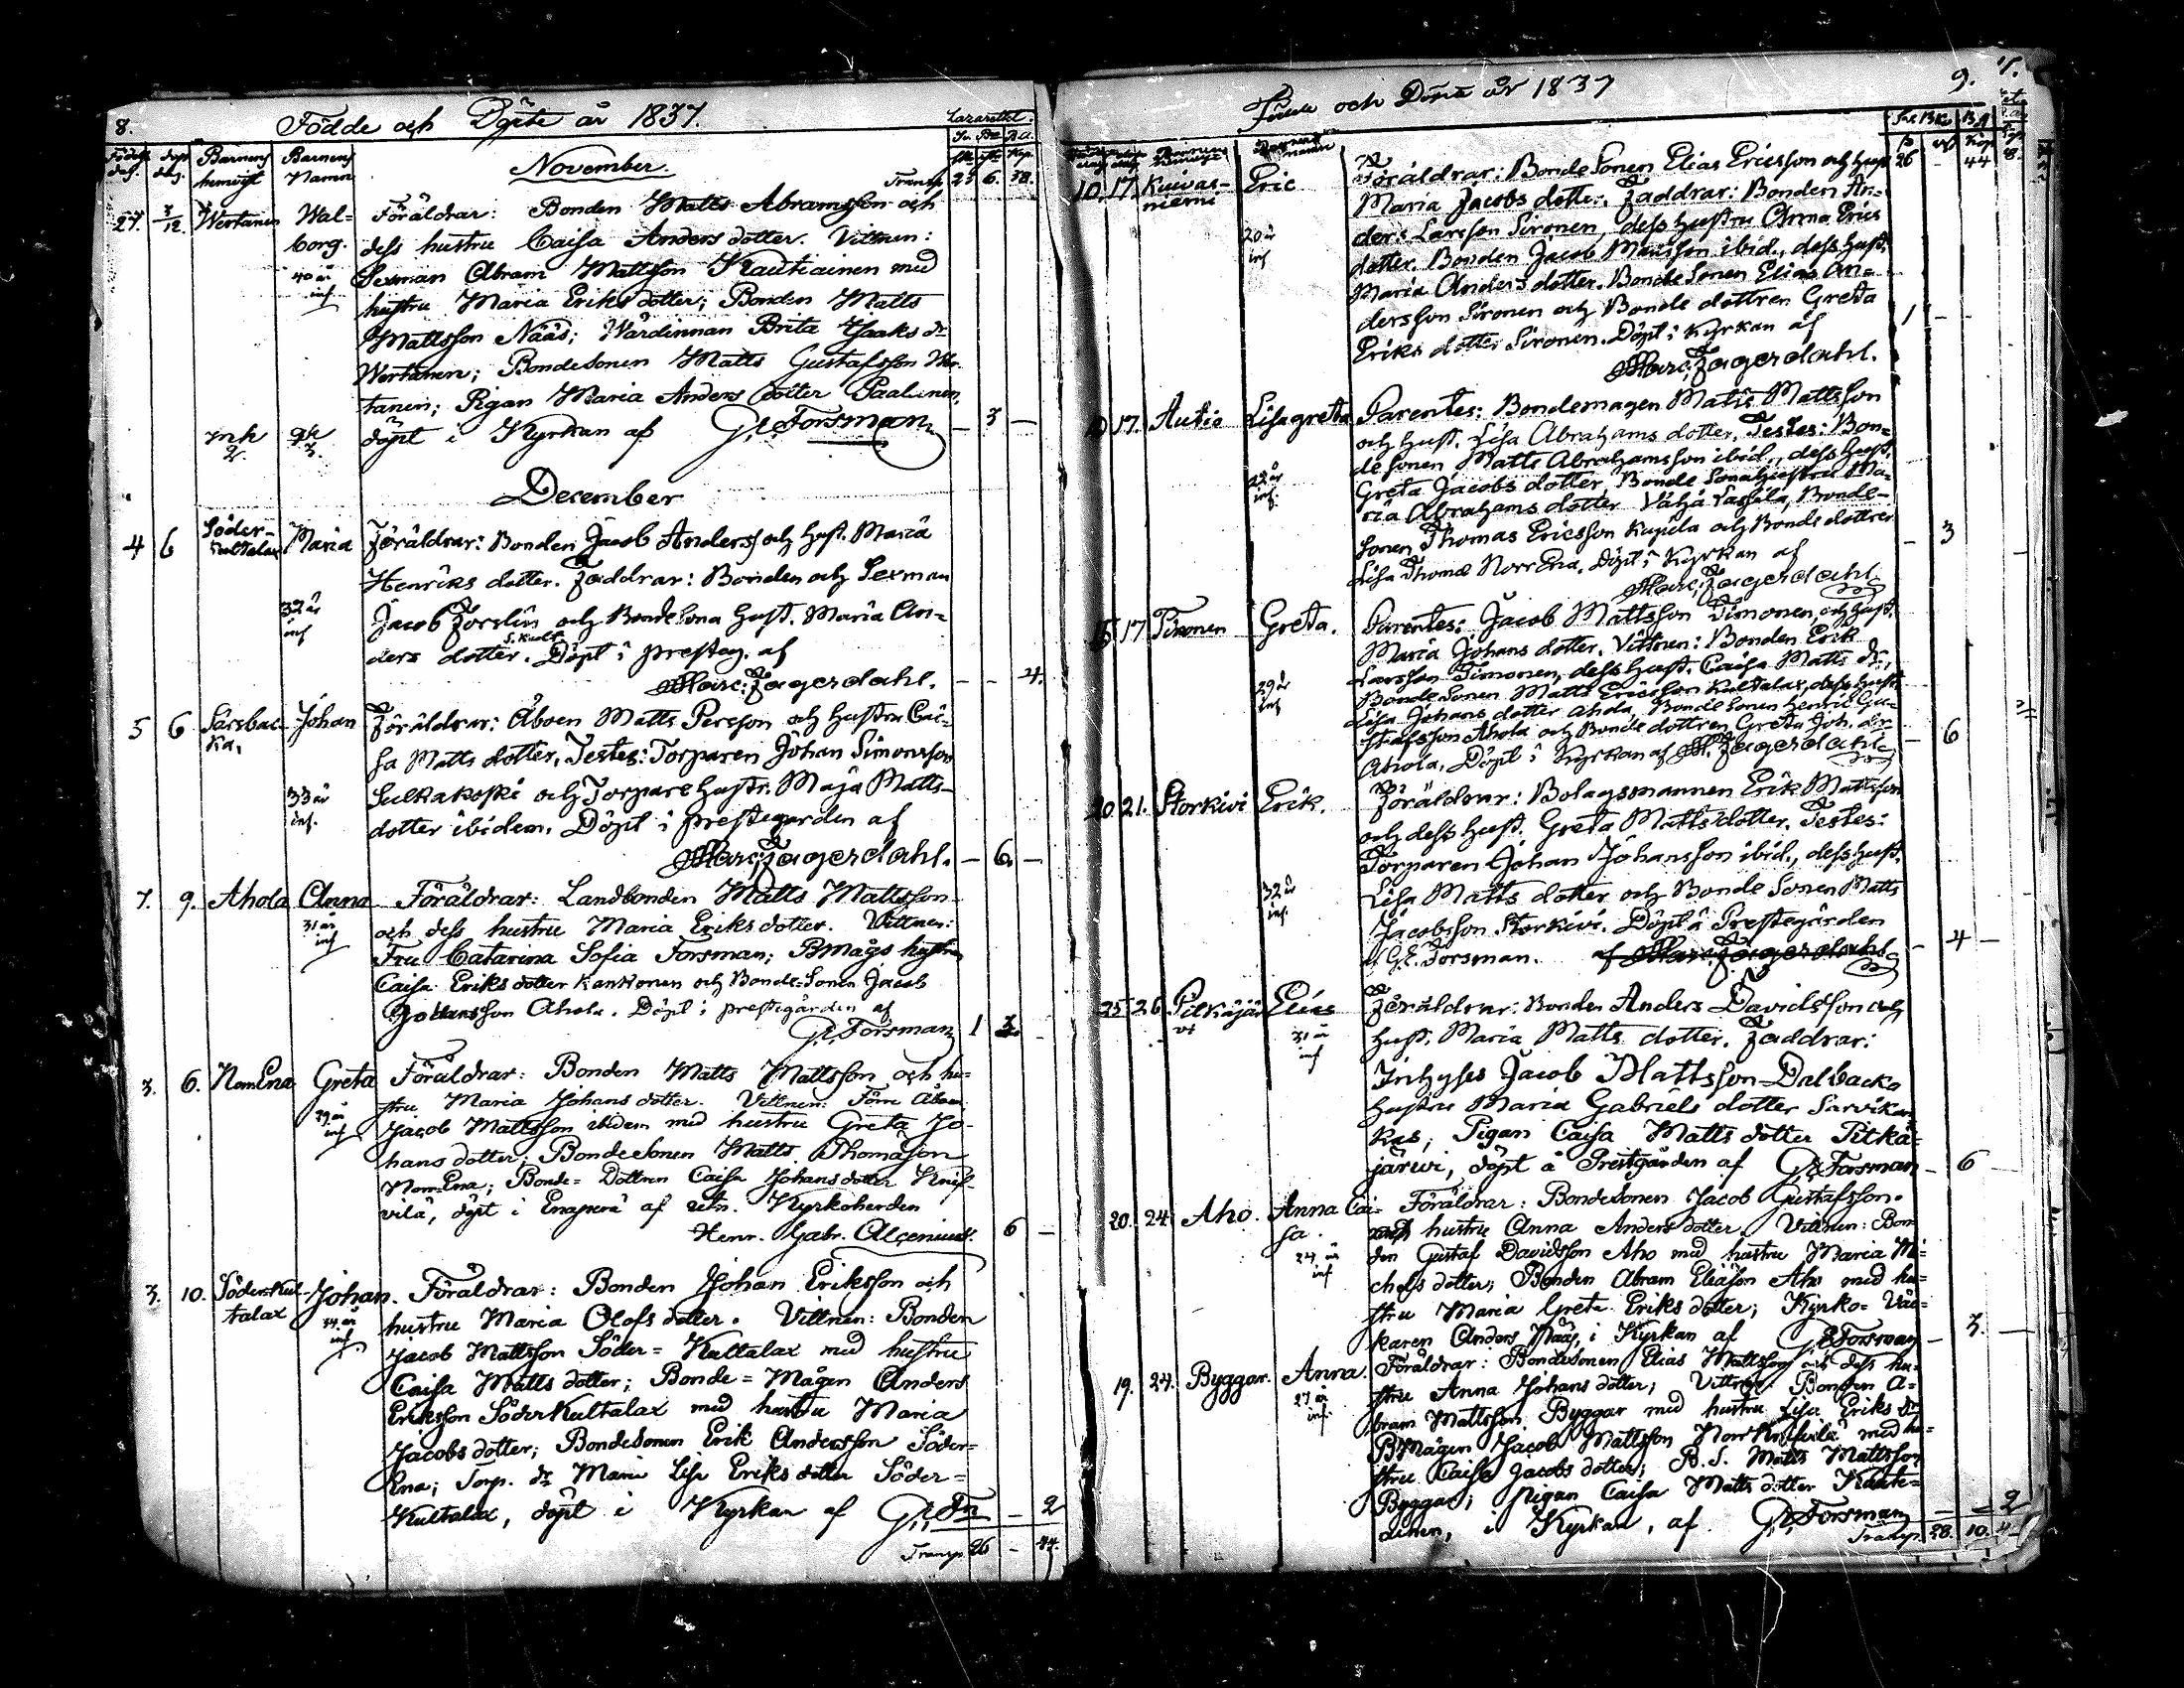 8.
Födde och Döpte år 1837.
Lazarettet.
Födelse dag. döpt dag. Barnens hemvist Barnens Namn
November.
Transp. 25 6. 38.
27. 3/12. Wertanen Wal- Föräldrar: Bonden Matts Abramsson och
borg. dess hustru Caisa Anders dotter. Vittnen:
40 år Sexman Abram Mattsson Kautiainen med
inf hustru Maria Eriks dotter; Bonden Matts
Mattsson Nääs; Wärdinnan Brita Isaaks dr
Wertanen; Bondesonen Matts Gustafsson Wer-
tanen; Pigan Maria Anders dotter Paalanen,
mk 2. qk 3. döpt i Kyrkan af G.E. Forsman – 3 –
December
4 6 Söder- Maria Föräldrar: Bonden Jacob Anderss och hust. Maria
Kultalax Henriks dotter. Faddrar: Bonden och Sexman
32 år Jacob Forslin och Bondesona hust. Maria An-
inf S. Kult.
ders dotter. Döpt i prestag. af
Marc: Fagerdahl. – – 4.
5 6 Särsbac- Johan Föräldrar: Åboen Matts Persson och hustru Cai-
ka, sa Matts dotter, Testes: Torparen Johan Simonsson
33 år Sulkakoski och Torpare hustr. Maja Matts-
inf. dotter ibidem. Döpt i prestegården af
Marc: Fagerdahl. – 6. –
7. 9. Ahola Anna Föräldrar: Landbonden Matts Mattsson
31 år och dess hustru Maria Eriks dotter. Vittnen:
inf Fru Catarina Sofia Forsman; Bmågs hustru
Caisa Eriks dotter Kankonen och Bonde-Sonen Jacob
Johansson Ahola. Döpt i prestegården af
G.E. Forsman 1 3 –
3. 6. Norr Ena Greta Föräldrar: Bonden Matts Mattsson och hu-
29 år stru Maria Johans dotter. Vittnen: Förre Åboen
inf Jacob Mattsson ibidem med hustru Greta Jo-
hans dotter; Bondesonen Matts Thomasson
Norr-Ena; Bonde-Dottren Caisa Johans dotter Knif-
vilä, döpt i Enaperä af utn. Kyrkoherden
Henr. Gabr. Alcenius. 6 –
3. 10. Söderkul- Johan. Föräldrar: Bonden Johan Eriksson och
talax 34 år hustru Maria Olofs dotter. Vittnen: Bonden
inf Jacob Mattsson Söder-Kultalax med hustru
Caisa Matts dotter; Bonde-Mågen Anders
Eriksson Söderkultalax med hustru Maria
Jacobs dotter; Bondesonen Erik Andersson Söder-
Ena; Torp. dr Maria Lisa Eriks dotter Söder-
Kultalax, döpt i Kyrkan af G.E. Fn – 2
Transp. 26 – 44.
9.
Födde och Döpte år 1837
26 – 44
10. 17. Kuivas- Eric Föräldrar: Bonde Sonen Elias Ericsson och hust
niemi Maria Jacobs dotter. Faddrar: Bonden An-
20 år ders Larsson Sironen, dess hustru Anna Erics
inf dotter. Bonden Jacob ibid., dess hust.
Maria Anders dotter. Bonde Sonen Elias An-
dersson Sironen och Bonde dottren Greta
Eriks dotter Sironen. Döpt i Kyrkan af 1 –
Marc: Fagerdahl.
17. Autio Lisa greta Parentes: Bondemågen Matts Mattsson
och hust. Lisa Abrahams dotter, Testes: Bon-
22 år de sonen Matts Abrahamsson ibid., dess hust.
inf. Greta Jacobs dotter, Bonde Sonahustru Ma-
ria Abrahams dotter Vähä Vassila, Bonde-
sonen Thomas Ericsson Kujala och Bonde dottren
Lisa Thomæ Norr Ena. Döpt i Kyrkan af – 3 –
Marc: Fagerdahl.
15 17 Timonen Greta. Parentes: Jacob Mattsson Timonen, och hust.
Maria Johans dotter. Vittnen: Bonden Erik
29 år Larsson Timonen, dess hust. Caisa Matts dr.,
inf Bonde Sonen Matts Ericsson Kultalax, dess hust.
Lisa Johans dotter Ahola, Bonde Sonen Henric Gu-
stafsson Ahola och Bonde dottren Greta Joh. dr
Ahola, Döpt i Kyrkan af M. Fagerdahl – 6
20 21. Storkivi Erik. Föräldrar: Bolagsmannen Erik Mattsson
och dess hust. Greta Matts dotter. Testes:
Torparen Johan Johansson ibid., dess hust.
32 år Lisa Matts dotter och Bonde Sonen Matts
inf. Jacobsson Storkivi. Döpt å Prestegården
G.E. Forsman. af Marc: Fagerdahl – 4 –
25 26 Pitkäjär Elias Föräldrar: Bonden Anders Davidsson och
vi 31 år hust. Maria Matts dotter. Faddrar:
inf Inhyses Jacob Mattsson Dalbacka
hustru Maria Gabriels dotter Sarvikan
kas; Pigan Caisa Matts dotter Pitkä-
järwi, döpt å Prestgården af G.E. Forsman – 6
20. 24 Aho. Anna Cai- Föräldrar: Bondesonen Jacob Gustafsson.
sa. och hustru Anna Anders dotter. Vittnen: Bon
24 år den Gustaf Davidsson Aho med hustru Maria Mi-
inf chels dotter; Bonden Abram Eliasson Aho med hu-
stru Maria Greta Eriks dotter; Kyrko-Väc-
karen Anders Nääs, i Kyrkan af G.E. Forsman – 3. –
19. 24. Byggar. Anna. Föräldrar: Bondesonen Elias Mattsson och dess hu-
27 år stru Anna Johans dotter; Vittnen: Bonden A-
inf. bram Mattsson Byggar med hustru Lisa Eriks dr
BMågen Jacob Mattsson Norr Knifvilä med hu-
stru Caisa Jacobs dotter; B. S. Matts Mattsson
Byggar; pigan Caisa Matts dotter Kaute-
ainen, i Kyrkan, af G.E. Forsman – – 2
Transp. 28. 10.